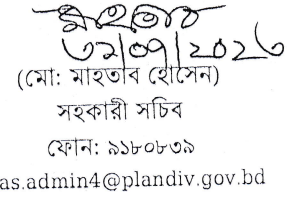 ৩১/০৭/২০২৩
(মো: মাহতাব হোসেন)
সহকারী সচিব
ফোন: ৯১৮০৮৩৯
as.admin4@plandiv.gov.bd